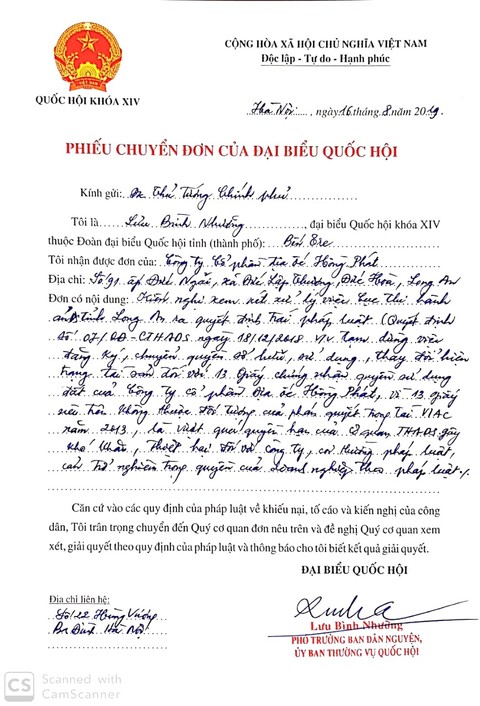 CỘNG HÒA XÃ HỘI CHỦ NGHĨA VIỆT NAM
Độc lập - Tự do - Hạnh phúc
QUỐC HỘI KHÓA XIV
Hà Nội....., ngày 16 tháng 8 năm 2019.
PHIẾU CHUYỂN ĐƠN CỦA ĐẠI BIỂU QUỐC HỘI
Kính gửi: Thủ tướng Chính phủ
Tôi là Lưu Bình Nhưỡng, đại biểu Quốc hội khóa XIV
thuộc Đoàn đại biểu Quốc hội tỉnh (thành phố): Bến Tre
Tôi nhận được đơn của: Công ty Cổ phần địa ốc Hồng Phát
Địa chỉ: Số 91 ấp Đức Ngãi, xã Đức Lập Thượng, Đức Hòa, Long An
Đơn có nội dung: Kiến nghị xem xét xử lý việc Cục thi hành
án tỉnh Long An ra quyết định trái pháp luật (Quyết định
số 07/QĐ-CTHADS ngày 18/12/2018 v/v tạm dừng việc
đăng ký, chuyển quyền sở hữu, sử dụng, thay đổi hiện
trạng tài sản đối với 13 Giấy chứng nhận quyền sử dụng
đất của Công ty cổ phần địa ốc Hồng Phát, vì 13 giấy
nêu trên không thuộc đối tượng của phán quyết trọng tài VIAC
năm 2013, là vượt quá quyền hạn của cơ quan THADS gây
khó khăn, thiệt hại đối với công ty, coi thường pháp luật,
cản trở nghiêm trọng quyền của doanh nghiệp theo pháp luật./.
Căn cứ vào các quy định của pháp luật về khiếu nại, tố cáo và kiến nghị của công
dân, Tôi trân trọng chuyển đến Quý cơ quan đơn nêu trên và đề nghị Quý cơ quan xem
xét, giải quyết theo quy định của pháp luật và thông báo cho tôi biết kết quả giải quyết.
ĐẠI BIỂU QUỐC HỘI
Địa chỉ liên hệ:
Số 22 Hùng Vương
Ba Đình Hà Nội
Lưu Bình Nhưỡng
PHÓ TRƯỞNG BAN DÂN NGUYỆN,
ỦY BAN THƯỜNG VỤ QUỐC HỘI
CS Scanned with
CamScanner